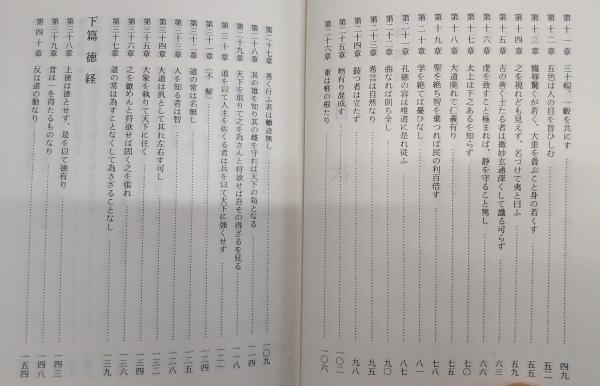 第十一章 三十輻、一轂を共にす 四九
第十二章 五色は人の目を盲ひしむ 五二
第十三章 寵辱驚くが若く、大患を貴ぶこと身の若くす 五五
第十四章 之を視れども見えず、名づけて夷と曰ふ 五九
第十五章 古の善く士たる者は微妙玄通深くして識る可らず 六三
第十六章 虚を致すこと極まれば、静を守ること篤し 六六
第十七章 太上は下之あるを知らず 七〇
第十八章 大道廃れて仁義有り 七五
第十九章 聖を絶ち智を棄つれば民の利百倍す 七七
第二十章 学を絶てば憂ひなし 八一
第二十一章 孔徳の容は唯道に是れ従ふ 八七
第二十二章 曲なれば則ち全し 九二
第二十三章 希言は自然なり 九五
第二十四章 跂つ者は立たず 九八
第二十五章 物有り混成す 一〇二
第二十六章 重は軽の根たり 一〇六
第二十七章 善く行ふ者は轍迹無し 一〇九
第二十八章 其の雄を知り其の雌を守れば天下の谿となる 一一四
第二十九章 天下を取りて之を為さんと将欲せば吾その得ざるを見る 一一八
第三十章 道を以て人主を佐くる者は兵を以て天下に強くせず 一二一
第三十一章 (不解) 一二四
第三十二章 道の常は名無し 一二五
第三十三章 人を知る者は智 一二八
第三十四章 大道は汎として其れ左右す可し
第三十五章 大象を執りて天下に往く
第三十六章 之を歙めんと将欲せば固く之を張れ 一三六
第三十七章 道の常は為すことなくして為さざることなし 一三九
下篇 徳経
第三十八章 上徳は徳とせず、是を以て徳有り 一四三
第三十九章 昔は一を得たるものなり 一四八
第四十章 反は道の動なり 一五四